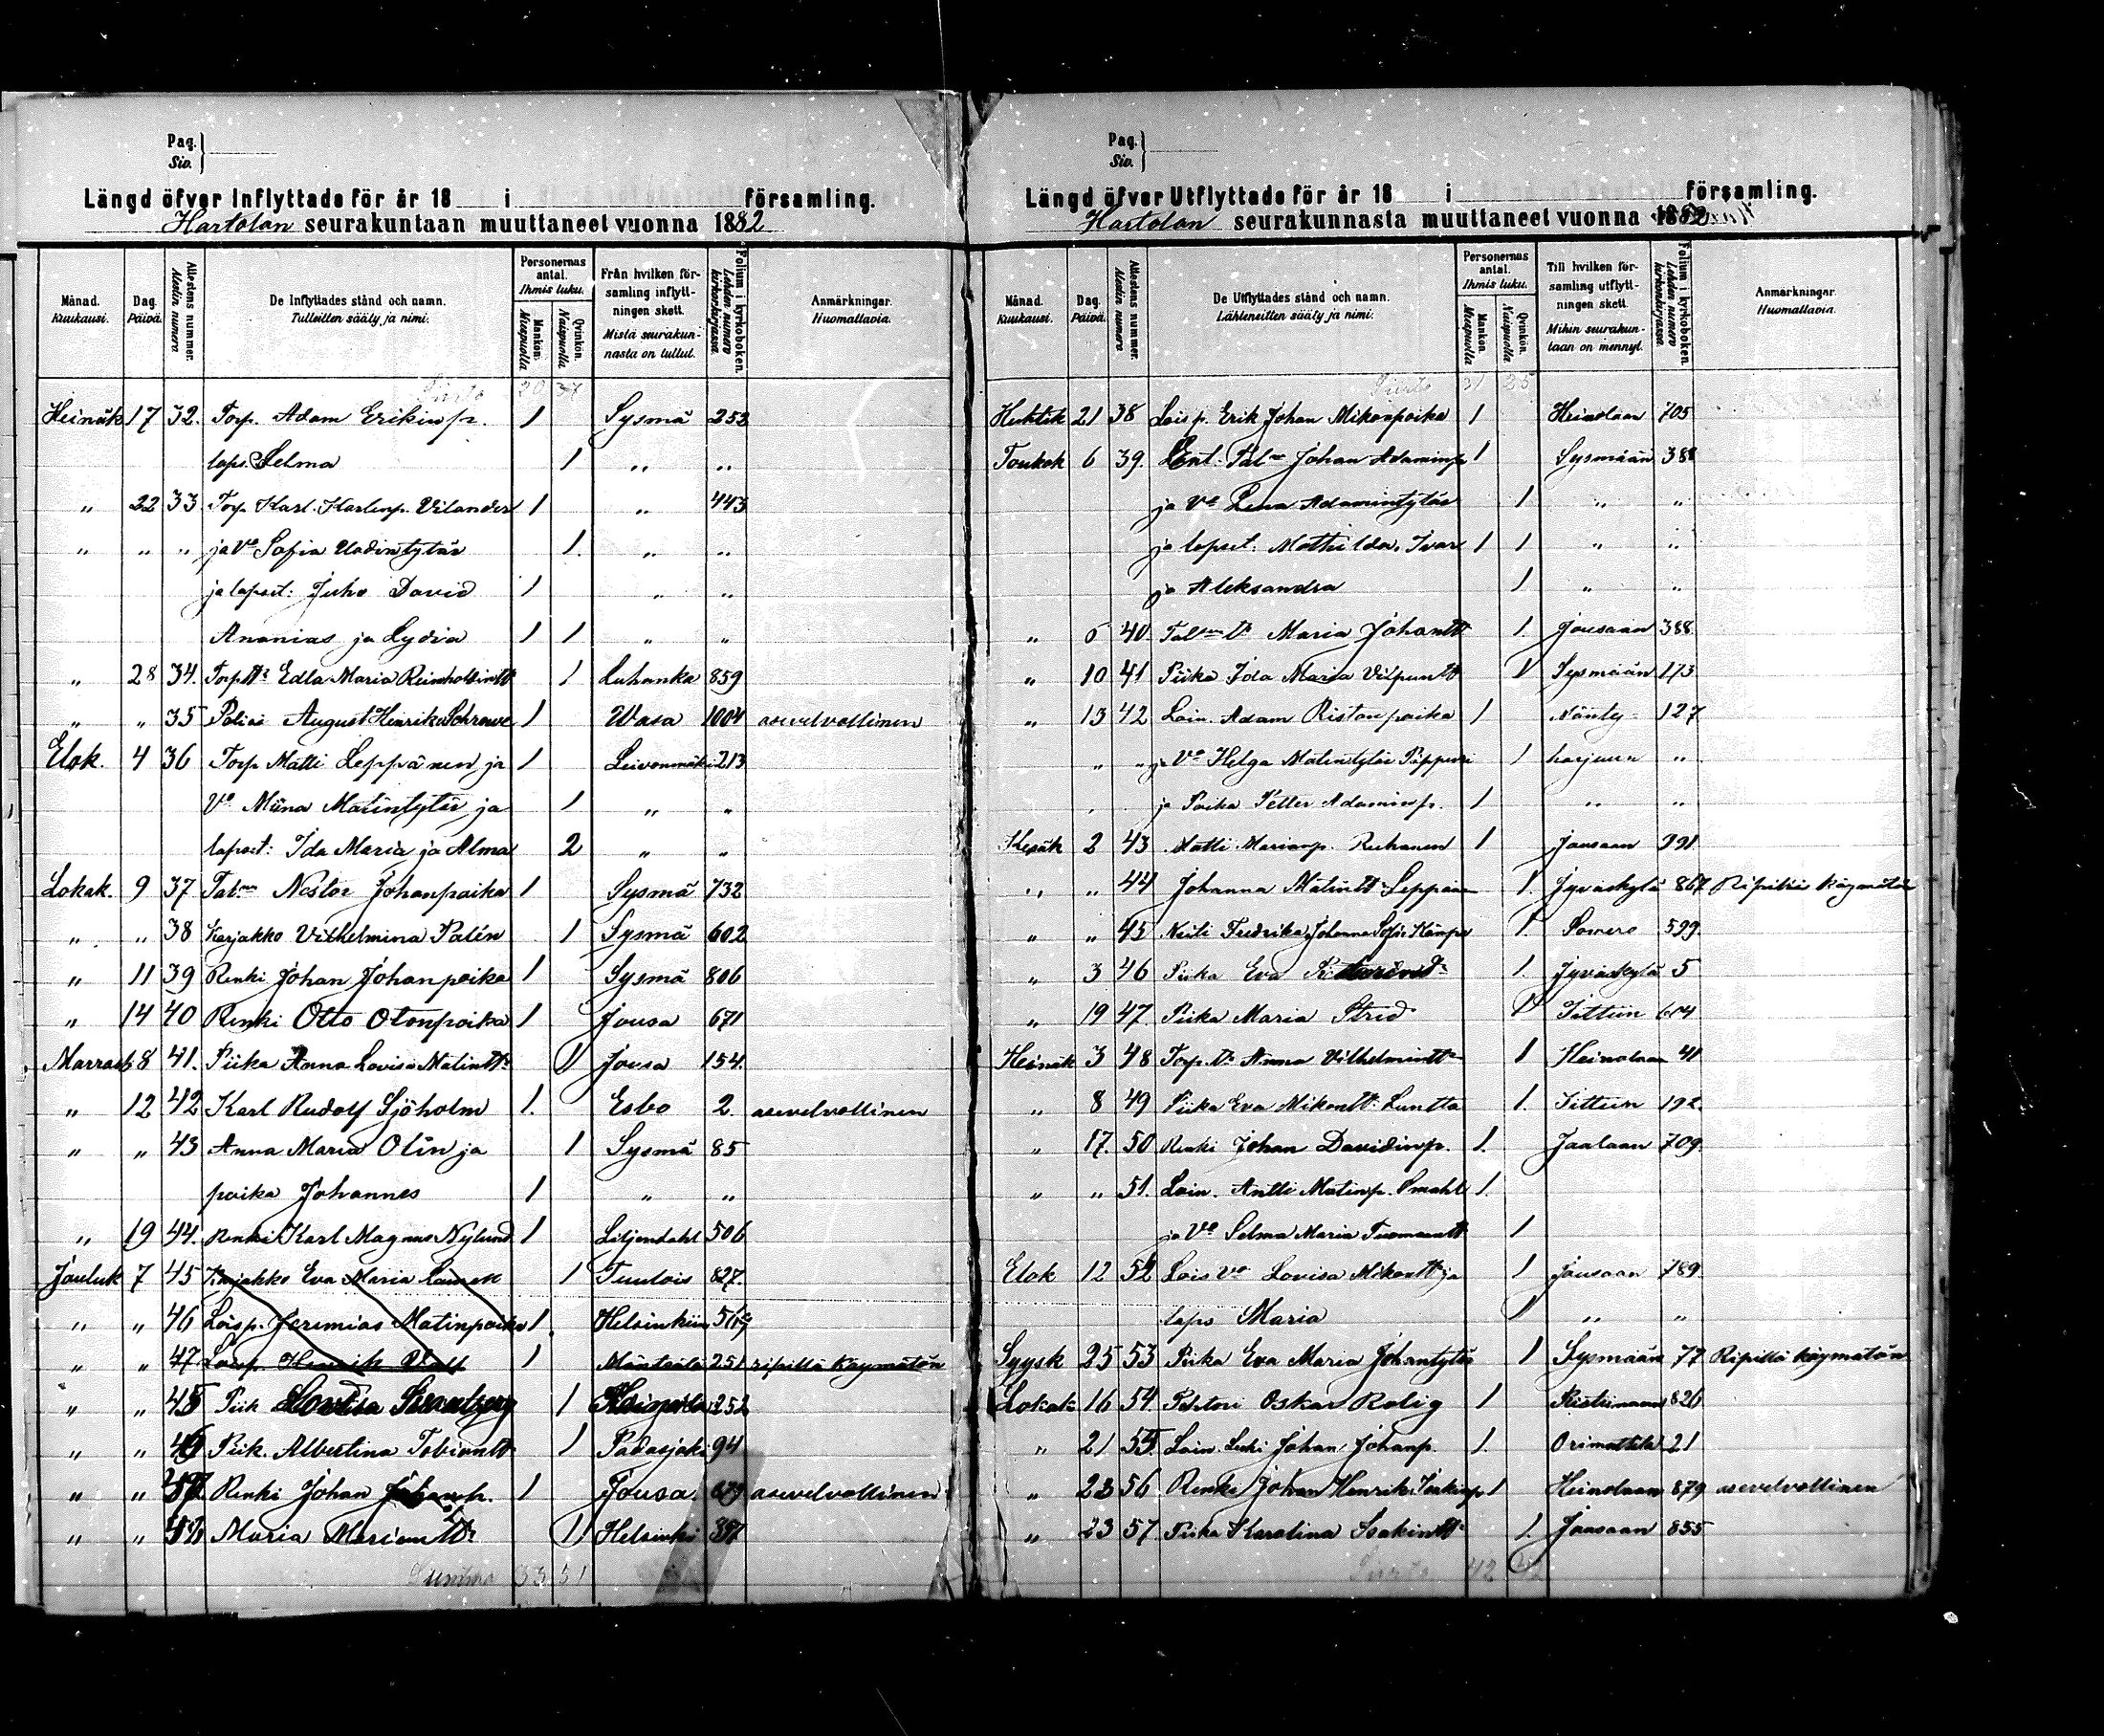 Pag.
Siv.
Längd öfver Inflyttade för år 18 i församling.
Hartolan seurakuntaan muuttaneet vuonna 1882
Månad. Kuukausi. Dag. Päivä. Attestens nummer. Alestin numero. De Inflyttades stånd och namn. Tulleitten sääty ja nimi. Personernas antal. Ihmis luku. Mankön. Miespuolia Qvinkön. Naispuolia Från hvilken församling inflyttningen skett. Mistä seurakunnasta on tullut. Folium i kyrkoboken. Lehden numero kirkonkirjassa. Anmärkningar. Huomattavia.
Siirto 20 37
Heinäk 17 32. Torp. Adam Erikinp. 1 Sysmä 253
laps. Selma 1 " "
" 22 33 Torp Karl Karlinp. Vilander 1 " 443
" " " ja Vo Sofia Uadintytär 1. " "
ja lapset: Juho David 1 " "
Ananias ja Lydia 1 1 " "
" 28 34. Torp tr Edla Maria Reinholtintr 1 Luhanka 859
" " 35 August Henrik 1 Wasa 1004 asevelvollinen
Elok. 4 36 Torp Matti Leppänen ja 1 Leivonmäki 213
Vo Miina Matintytär ja 1 " "
lapset: Ida Maria ja Alma 2 " "
Lokak. 9 37 Tal. Nestor Johanpoika 1 Sysmä 732
" " 38 Karjakko Vilhelmina Palén 1 Sysmä 602
" 11 39 Renki Johan Johanpoika 1 Sysmä 806
" 14 40 Renki Otto Otonpoika 1 Jousa 671
Marrask 8 41. Piika Anna Lovisa Matintr 1 Jousa 154.
" 12 42 Karl Rudolf Sjöholm 1. Esbo 2. asevelvollinen
" " 43 Anna Maria Olin ja 1 Sysmä 85
poika Johannes 1 " "
" 19 44. Renki Karl Magnus Nylund 1 Liljendahl 506
Jouluk 7 45 Karjakko Eva Maria 1 Tuulois 827.
" " 46 Loisp. Jeremias Matinpoika 1. Helsinkiin
" " 47 Henrik 1 Mäntsälä 251 ripillä käymätön
" " 45 Piik Lovisa 1 252
" " 46 Piik. Albertina Tobiantr 1 Padasjoki 94
" " 47 Renki Johan Johanp. 1 Jousa 679 asevelvollinen
" " Maria Mariantr 1 Helsinki
Summa 33 51
Pag.
Siv.
Längd öfver Utflyttade för år 18 i församling.
Hartolan seurakunnasta muuttaneet vuonna 1882
Månad. Kuukausi. Dag. Päivä. Attestens nummer. Alestin numero. De Utflyttades stånd och namn. Lähteneitten sääty ja nimi. Personernas antal. Ihmis luku. Mankön. Miespuolia Qvinkön. Naispuolia Till hvilken församling utflyttningen skett. Mihin seurakuntaan on mennyt. Folium i kyrkoboken. Lehden numero kirkonkirjassa. Anmärkningar. Huomattavia.
Siirto 31 25
Huhtik 21 38 Loisp. Erik Johan Mikonpoika 1 Heinolaan 705
Toukok 6 39. Ent. Tal Johan Adaminp 1 Sysmään 388
ja Vo Lena Adamintytär 1 " "
ja lapset: Mathilda, Ivar 1 1 " "
ja Aleksandra 1 " "
" 6 40. Tal tr Maria Johantr 1. Jousaan 388
" 10 41 Piika Ida Maria Vilpuntr 1 Sysmään 173
" 13 42 Loin. Adam Ristonpoika 1 Mänty- 127
" " ja Vo Helga Matintytär 1 harjuun "
ja Poika Petter Adaminp. 1 " "
Kesäk 2 43 Matti Marianp. Ruhanen 1 Jousaan 391
" " 44 Johanna Matintr Leppänen 1. Jyväskylä 867 Ripille käymätön
" " 45 Neiti Fredrika Johanna Sofia 1. Somero 599.
" 3 46 Piika Eva 1. Jyväskylä 5
" 19 47. Piika Maria Strid 1 Iittiin 604
Heinäk 3 48 Torp. tr Anna Vilhelmintr 1 Heinolaan 41
" 8 49 Piika Eva Mikontr Luntta 1. Iittiin 192.
" 17. 50 Renki Johan Davidinp. 1. Jaalaan 709.
" " 51. Loin. Antti Matinp. Smahl 1.
ja Vo Selma Maria Tuomantr 1
Elok 12 52 Lois Vo Lovisa Mikontr ja 1 Jousaan 789
laps Maria 1 " "
Syysk 25 53 Piika Eva Maria Johantytär 1 Sysmään 77 Ripillä käymätön
Lokak 16 54. Oskar Rolig 1 Ristiinaan 826
" 21 55. Loin. Leski Johan Johanp. 1. Orimattila 21
" 23 56 Renki Johan Henrik 1 Heinolaan 879 asevelvollinen
" 23 57 Piika Karolina Isakintr 1. Jousaan 855
Siirto 42